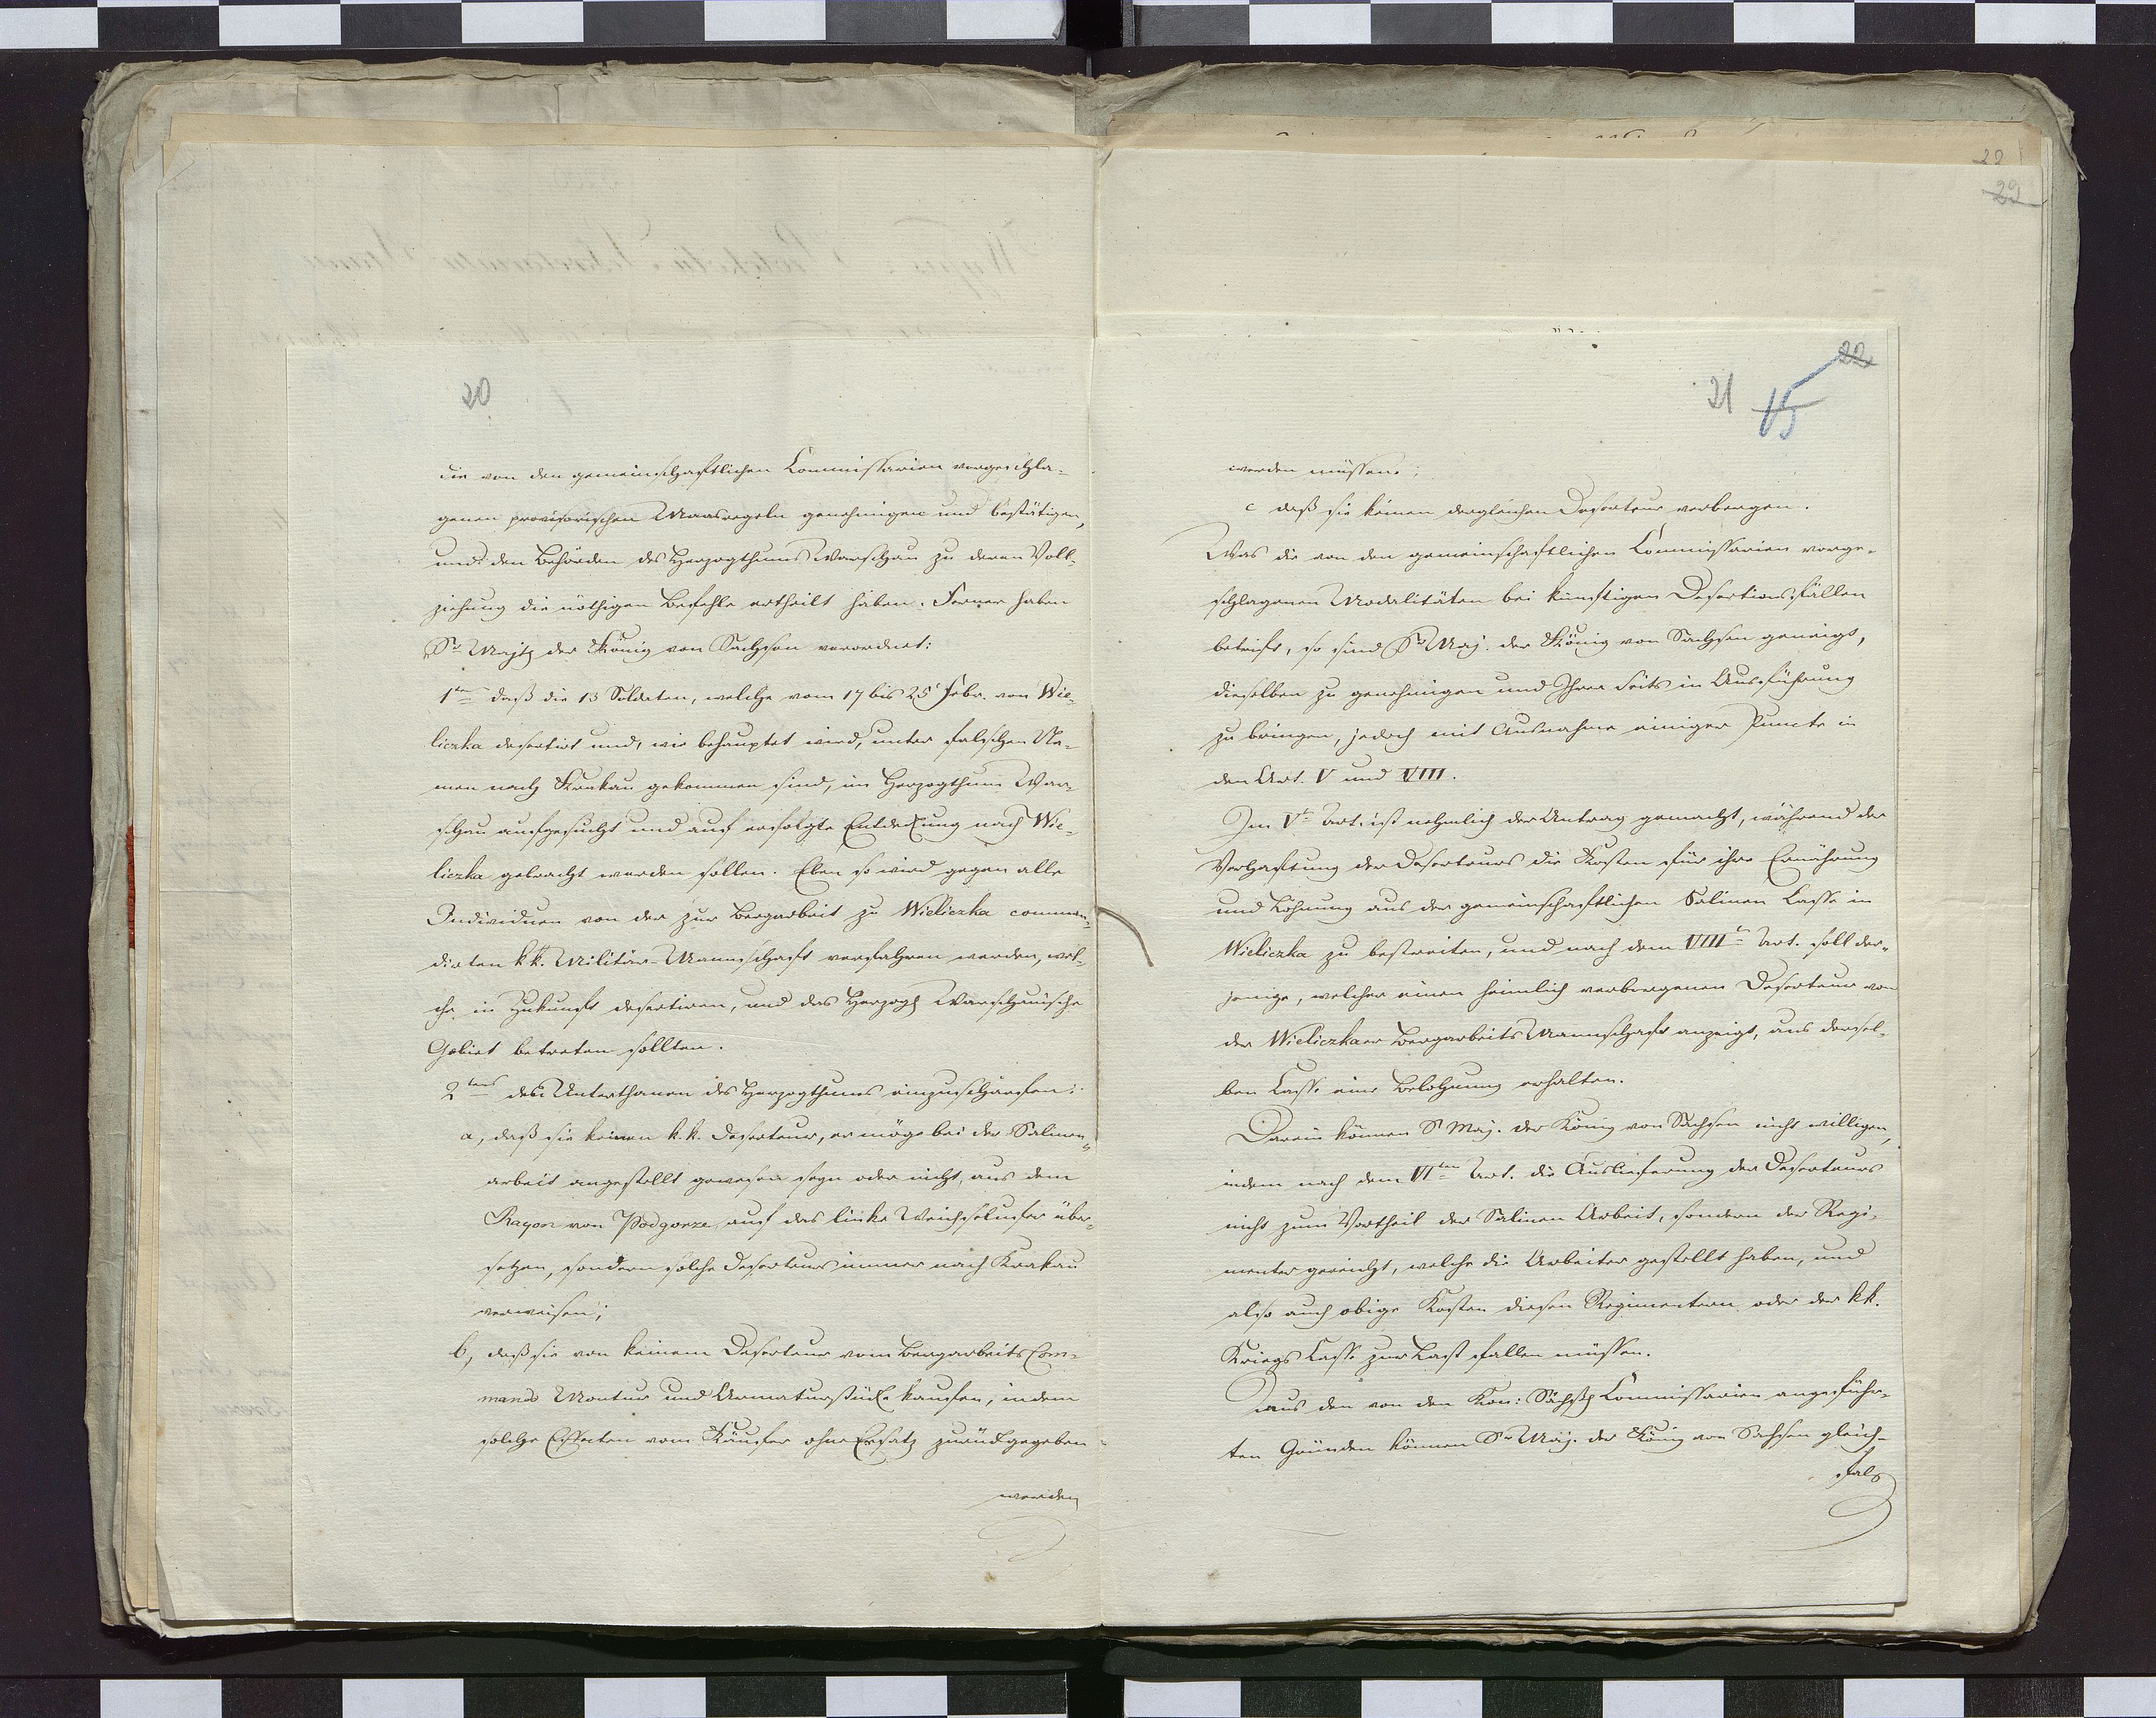 20
die von den gemeinschaftlichen Commissarien vorgeschla-
genen provisorischen Maasregeln genehmigen und bestätigen,
und den Behörden des Herzogthums Warschau zu deren Voll-
ziehung die nöthigen Befehle ertheilt haben. Ferner haben
Sr. Majtz der König von Sachsen verordnet:
1tens daß die 13 Soldaten, welche vom 17 bis 25 Febr. von Wie-
liczka desertirt und, wie behauptet wird, unter falschen Na-
men nach Krakau gekommen sind, im Herzogthum War-
schau aufgesucht und auf erfolgte Entdeckung nach Wie-
liczka gebracht werden sollen. Eben so wird gegen alle
Individuen von der zur Bergarbeit zu Wieliczka comman-
dirten kk. Militär-Mannschaft verfahren werden, wel-
che in Zukunft desertiren, und das Herzogl Warschauische
Gebiet betreten sollten.
2tens den Unterthanen des Herzogthums einzuschärfen:
a, daß sie keinen k.k. Deserteur, er möge bei der Salinen-
arbeit angestellt gewesen seyn oder nicht, aus dem
Rayon von Podgorze, auf das linke Weichselufer über-
setzen, sondern solche Deserteurs immer nach Krakau
verweisen;
b, daß sie von keinem Deserteur vom Bergarbeits Com-
mando Montur und Armaturstücke kaufen, indem
solche Effecten vom Käufer ohne Ersatz zurückgegeben
werden
22
29
22
21 15
werden müssen;
c daß sie keinen dergleichen Deserteur verbergen.
Was die von den gemeinschaftlichen Commissarien vorge-
schlagenen Modalitäten bei künftigen Desertionsfällen
betrift, so sind Sr Maj. der König von Sachsen geneigt,
dieselben zu genehmigen und Ihrer Seits in Ausführung
zu bringen, jedoch mit Ausnahme einiger Puncte in
den Art. V und VIII.
Im Vten Art. ist nehmlich der Antrag gemacht, während der
Verhaftung der Deserteurs die Kosten für ihre Ernährung
und Löhnung aus der gemeinschaftlichen Salinen Casse in
Wieliczka zu bestreiten, und nach dem VIIIten Art. soll der-
jenige, welcher einen heimlich verborgenen Deserteur von
der Wieliczkaer Bergarbeits Mannschaft anzeigt, aus dersel-
ben Casse eine Belohnung erhalten.
Darein können Sr Maj. der König von Sachsen nicht willigen,
indem nach dem VIten Art. die Auslieferung der Deserteurs
nicht zum Vortheil der Salinen Arbeit, sondern der Regi-
menter gereicht, welche die Arbeiter gestellt haben, und
also auch obige Kosten diesen Regimentern oder der kk.
Kriegs Casse zur Last fallen müssen.
Aus den von den Kön: Sächß Commissarien angeführ-
ten Gründen können Sr Maj. der König von Sachsen gleich-
fals